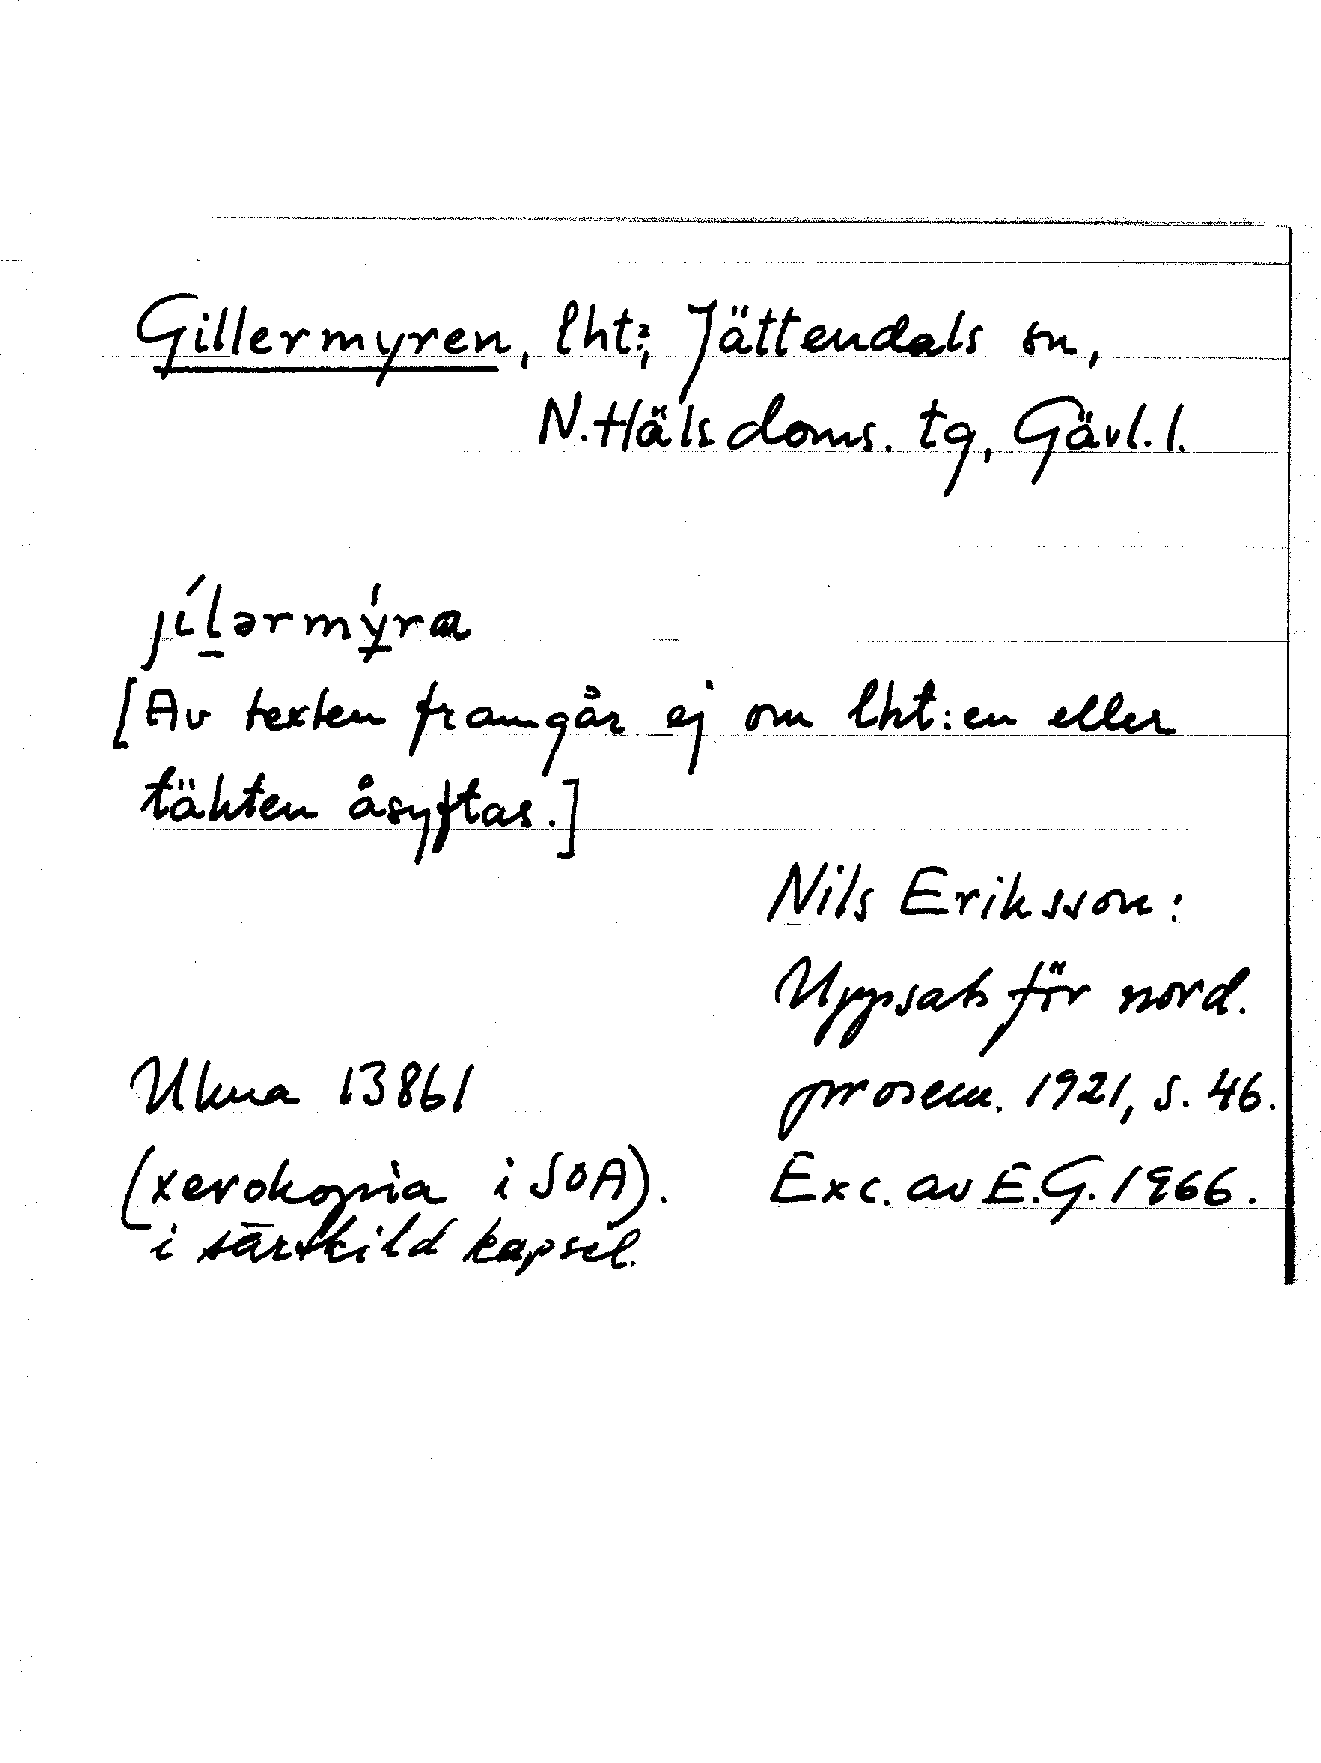 Gillermyren, lht; Jättendals sn,
N. Häls doms. tg, Gävl. l.
jílərmýra
[Av texten framgår ej om lht:en eller
täkten åsyftas.]
Nils Eriksson:
Uppsats för nord.
prosem. 1921, s. 46.
Ukua 13861
(xerokopia i SOA).
i särskild kapsel.
Exc. av E.G. 1966.